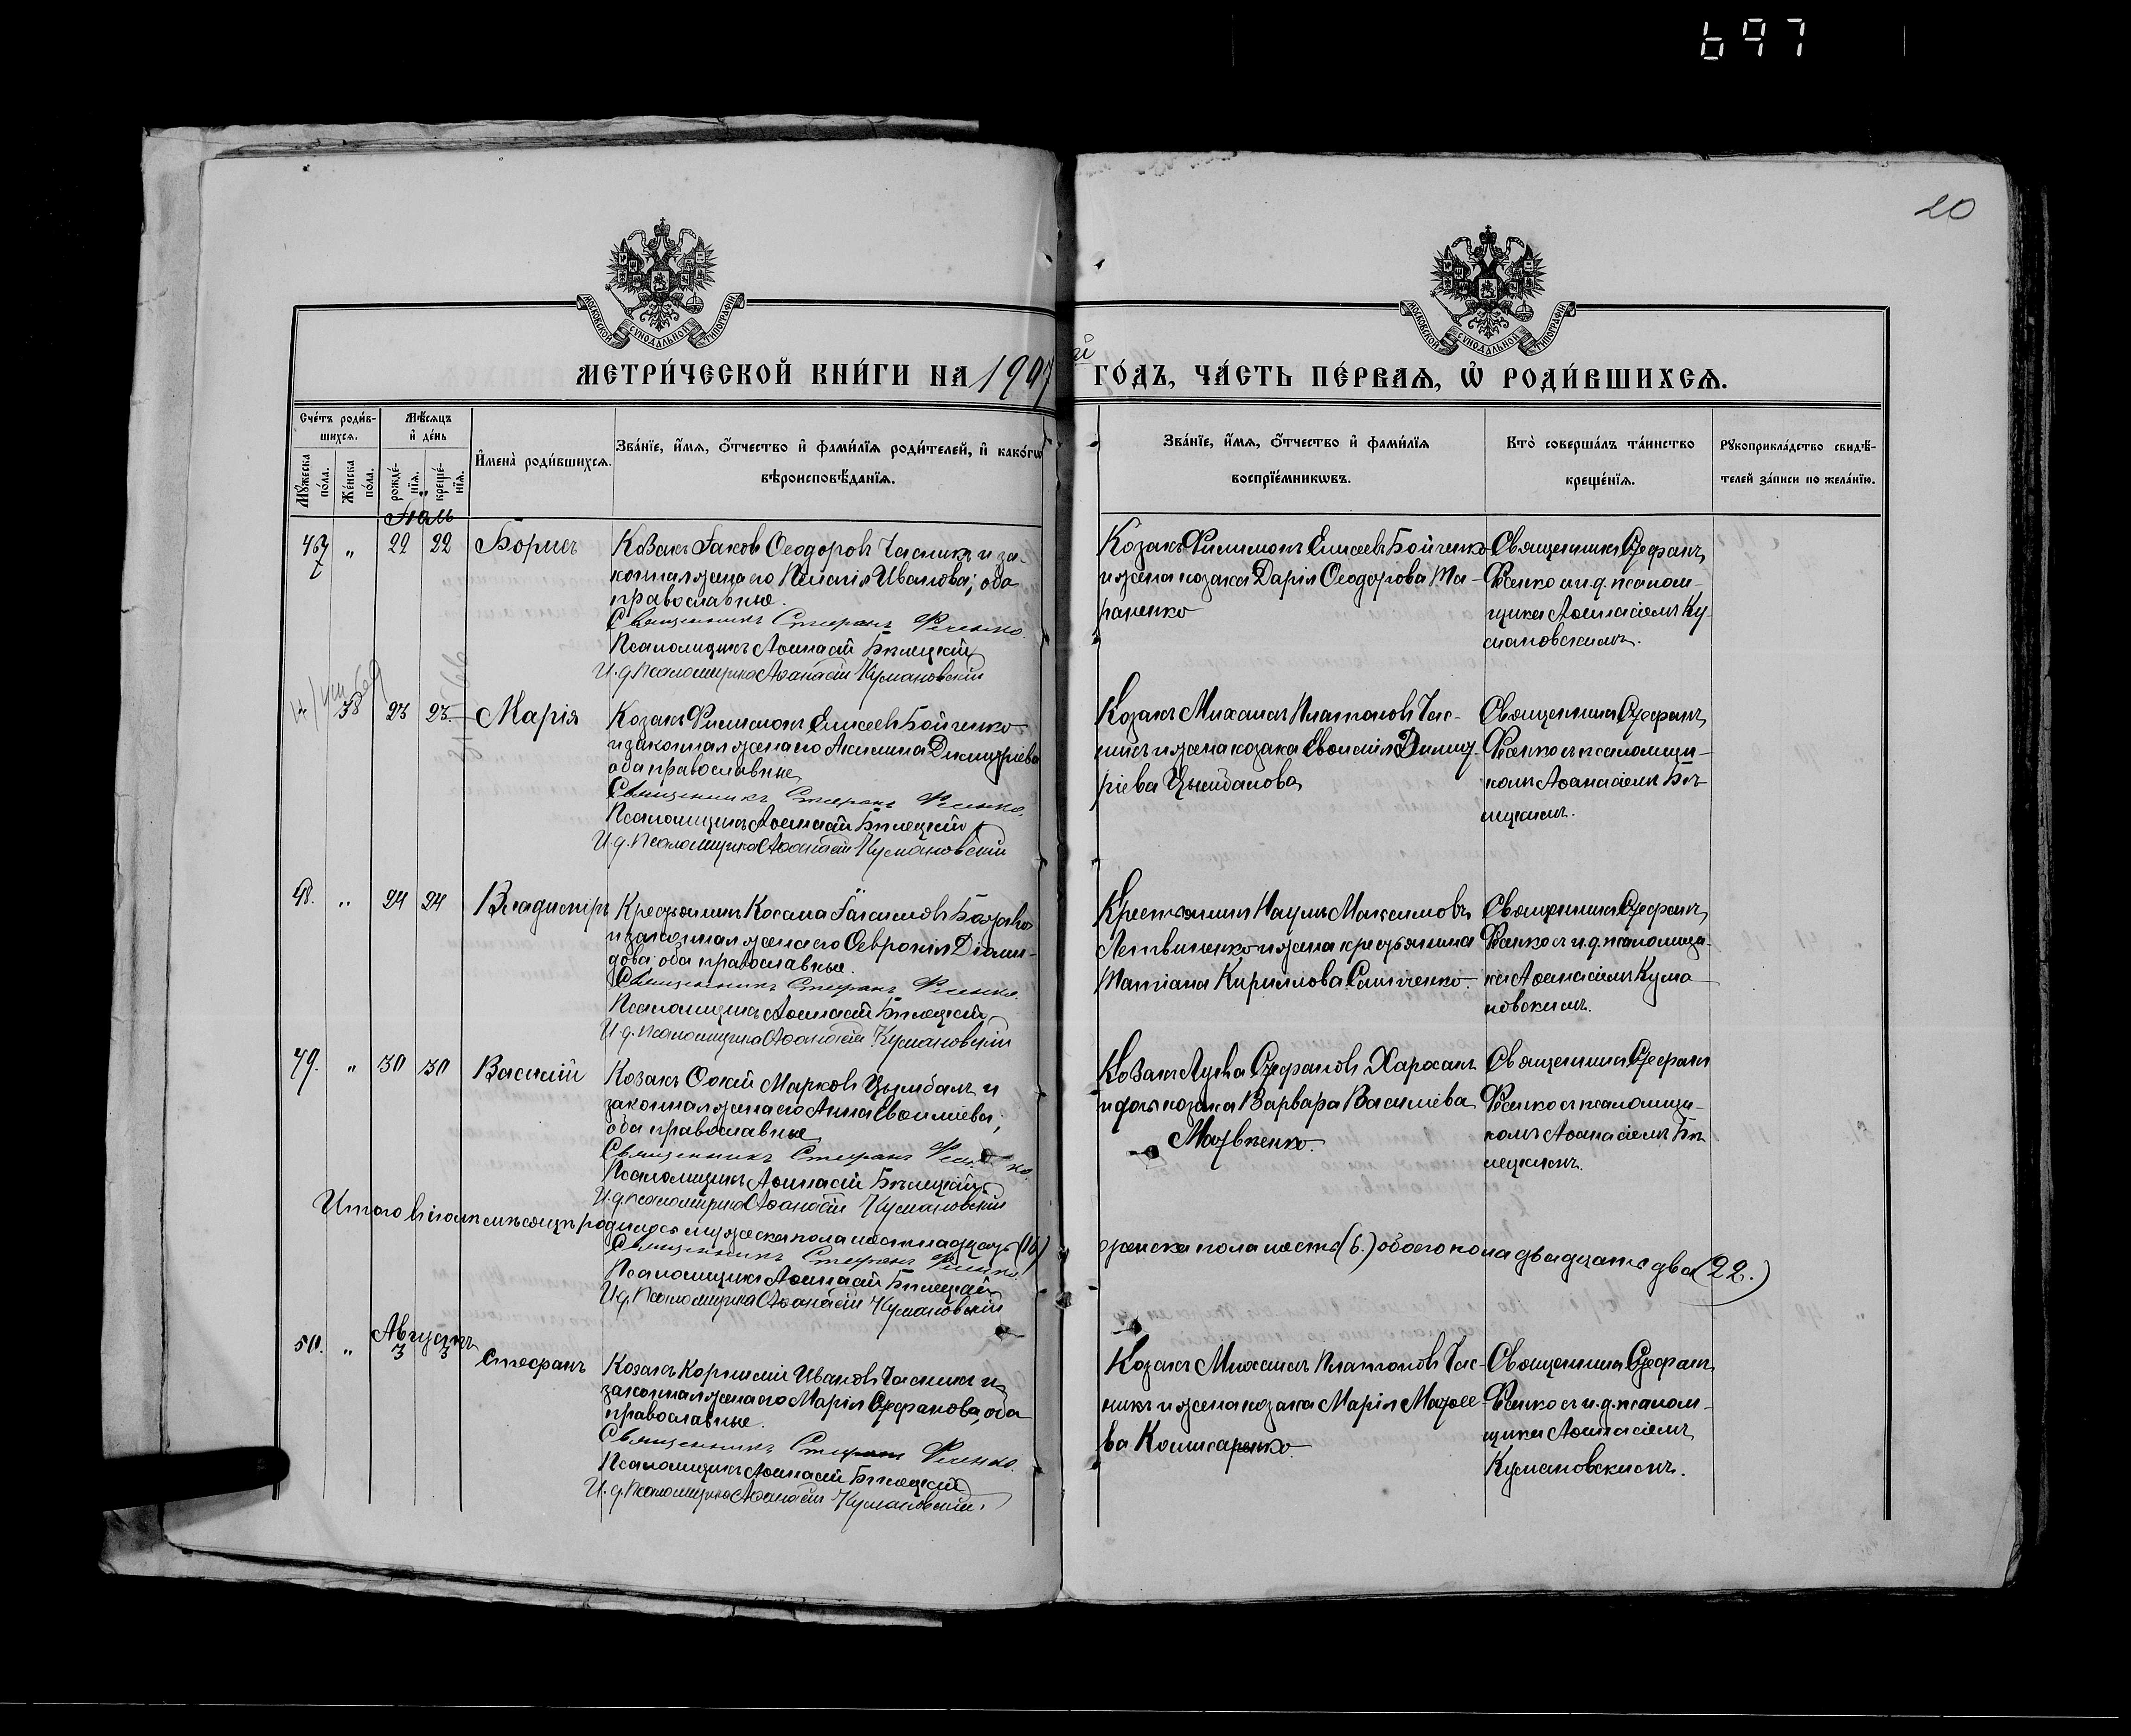 697
20
МОСКОВСКОЙ СѴНОДАЛЬНОЙ ТИПОГРАФІИ
МОСКОВСКОЙ СѴНОДАЛЬНОЙ ТИПОГРАФІИ
МЕТРИ́ЧЕСКОЙ КНИ́ГИ НА 1907 й ГО́ДЪ, ЧА́СТЬ ПЕ́РВАѦ, Ѡ РОДИ́ВШИХСѦ.
Сче́тъ роди́в-
шихсѧ.
Мꙋ́жеска
по́ла.
Же́нска
по́ла.
Мѣ́сѧцъ
и҆ де́нь
рожде́-
нїѧ.
креще́-
нїѧ.
И҆мена̀ роди́вшихсѧ.
Зва́нїе, и҆́мѧ, ѻ҆́тчество и҆ фами́лїѧ роди́телей, и҆ како́гѡ
вѣроисповѣ́данїѧ.
Зва́нїе, и҆́мѧ, ѻ҆́тчество и҆ фами́лїѧ
воспрїе́мникѡвъ.
Кто̀ соверша́лъ та́инство
креще́нїѧ.
Рꙋкоприкла́дство свидѣ́-
телей за́писи по жела́нїю.
Іюль
47 „ 22 22 Борисъ
Козакъ Іаковъ Ѳеодоровъ Часникъ и за-
конная жена его Пелагія Иванова; оба
православные.
Священникъ Стефанъ Фесенко.
Псаломщикъ Аѳанасій Бѣлецкій
И. д. Псаломщика Аѳанасій Кумановскій
Козакъ Филимонъ Елисеевъ Бойченко
и жена козака Дарія Ѳеодорова Та-
раненко
Священникъ Стефанъ
Фесенко съ и. д. псалом-
щика Аѳанасіемъ Ку-
мановскимъ.
38 23 23 Марія
Козакъ Филимонъ Елисеевъ Бойченко
и законная жена его Акилина Димитріева
оба православные
Священникъ Стефанъ Фесенко.
Псаломщикъ Аѳанасій Бѣлецкій
И. д. Псаломщика Аѳанасій Кумановскій
Козакъ Михаилъ Платоновъ Час-
никъ и жена козака Евѳимія Димит-
ріева Цымбалова
Священникъ Стефанъ
Фесенко съ псаломщи-
комъ Аѳанасіемъ Бѣ-
лецкимъ.
48. „ 24 24 Владиміръ
Крестьянинъ Косма
и законная жена его Ѳевронія Діоми-
дова оба православные.
Священникъ Стефанъ Фесенко.
Псаломщикъ Аѳанасій Бѣлецкій
И. д. Псаломщика Аѳанасій Кумановскій
Крестьянинъ Наумъ Максимовъ
Литвиненко и жена крестьянина
Татіана Кириллова
Священникъ Стефанъ
Фесенко съ и. д. псаломщи-
ка Аѳанасіемъ Кума-
новскимъ.
49. „ 30 30 Василій
Козакъ Марковъ Цымбалъ и
законная жена его Анна Евѳиміева;
оба православные
Священникъ Стефанъ Фесенко
Псаломщикъ Аѳанасій Бѣлецкій
И. д. Псаломщика Аѳанасій Кумановскій
Козакъ Лука Стефановъ
и дочь козака Варвара Василіева
Матвіенко.
Священникъ Стефанъ
Фесенко съ псаломщи-
комъ Аѳанасіемъ Бѣ-
лецкимъ.
Итого въ іюлѣ мѣсяцѣ родилось мужеска пола шестнадцать (16)
женска пола шесть (6.) обоего пола двадцать два (22.)
Священникъ Стефанъ Фесенко.
Псаломщикъ Аѳанасій Бѣлецкій
И. д. Псаломщика Аѳанасій Кумановскій
Августъ
50. „ 3 3 Стефанъ
Козакъ Корнилій Ивановъ Часникъ и
законная жена его Марія Стефанова, оба
православные.
Священникъ Стефанъ Фесенко.
Псаломщикъ Аѳанасій Бѣлецкій
И. д. Псаломщика Аѳанасій Кумановскій.
Козакъ Михаилъ Платоновъ Час-
никъ и жена козака Марія Матѳее-
ва
Священникъ Стефанъ
Фесенко съ и. д. псалом-
щика Аѳанасіемъ
Кумановскимъ.